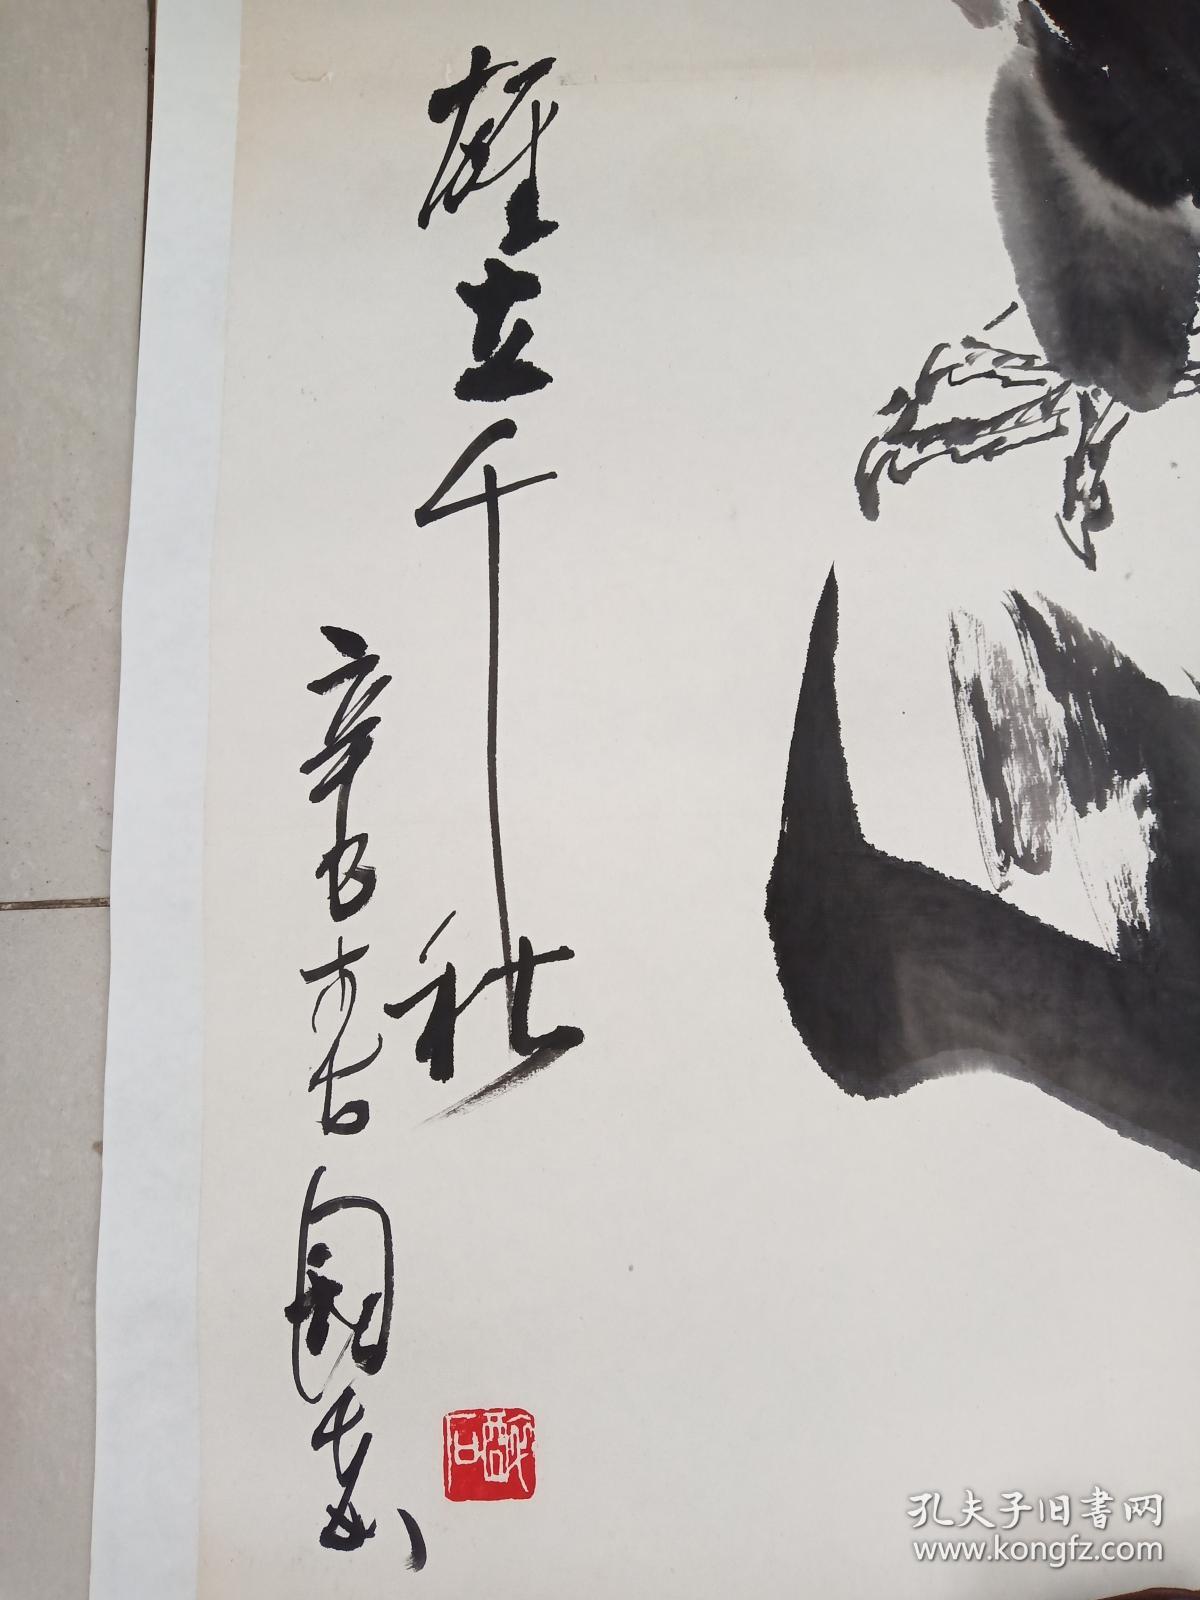 雄立千秋
辛卯春
国
醉石
孔夫子旧书网
www.kongfz.com